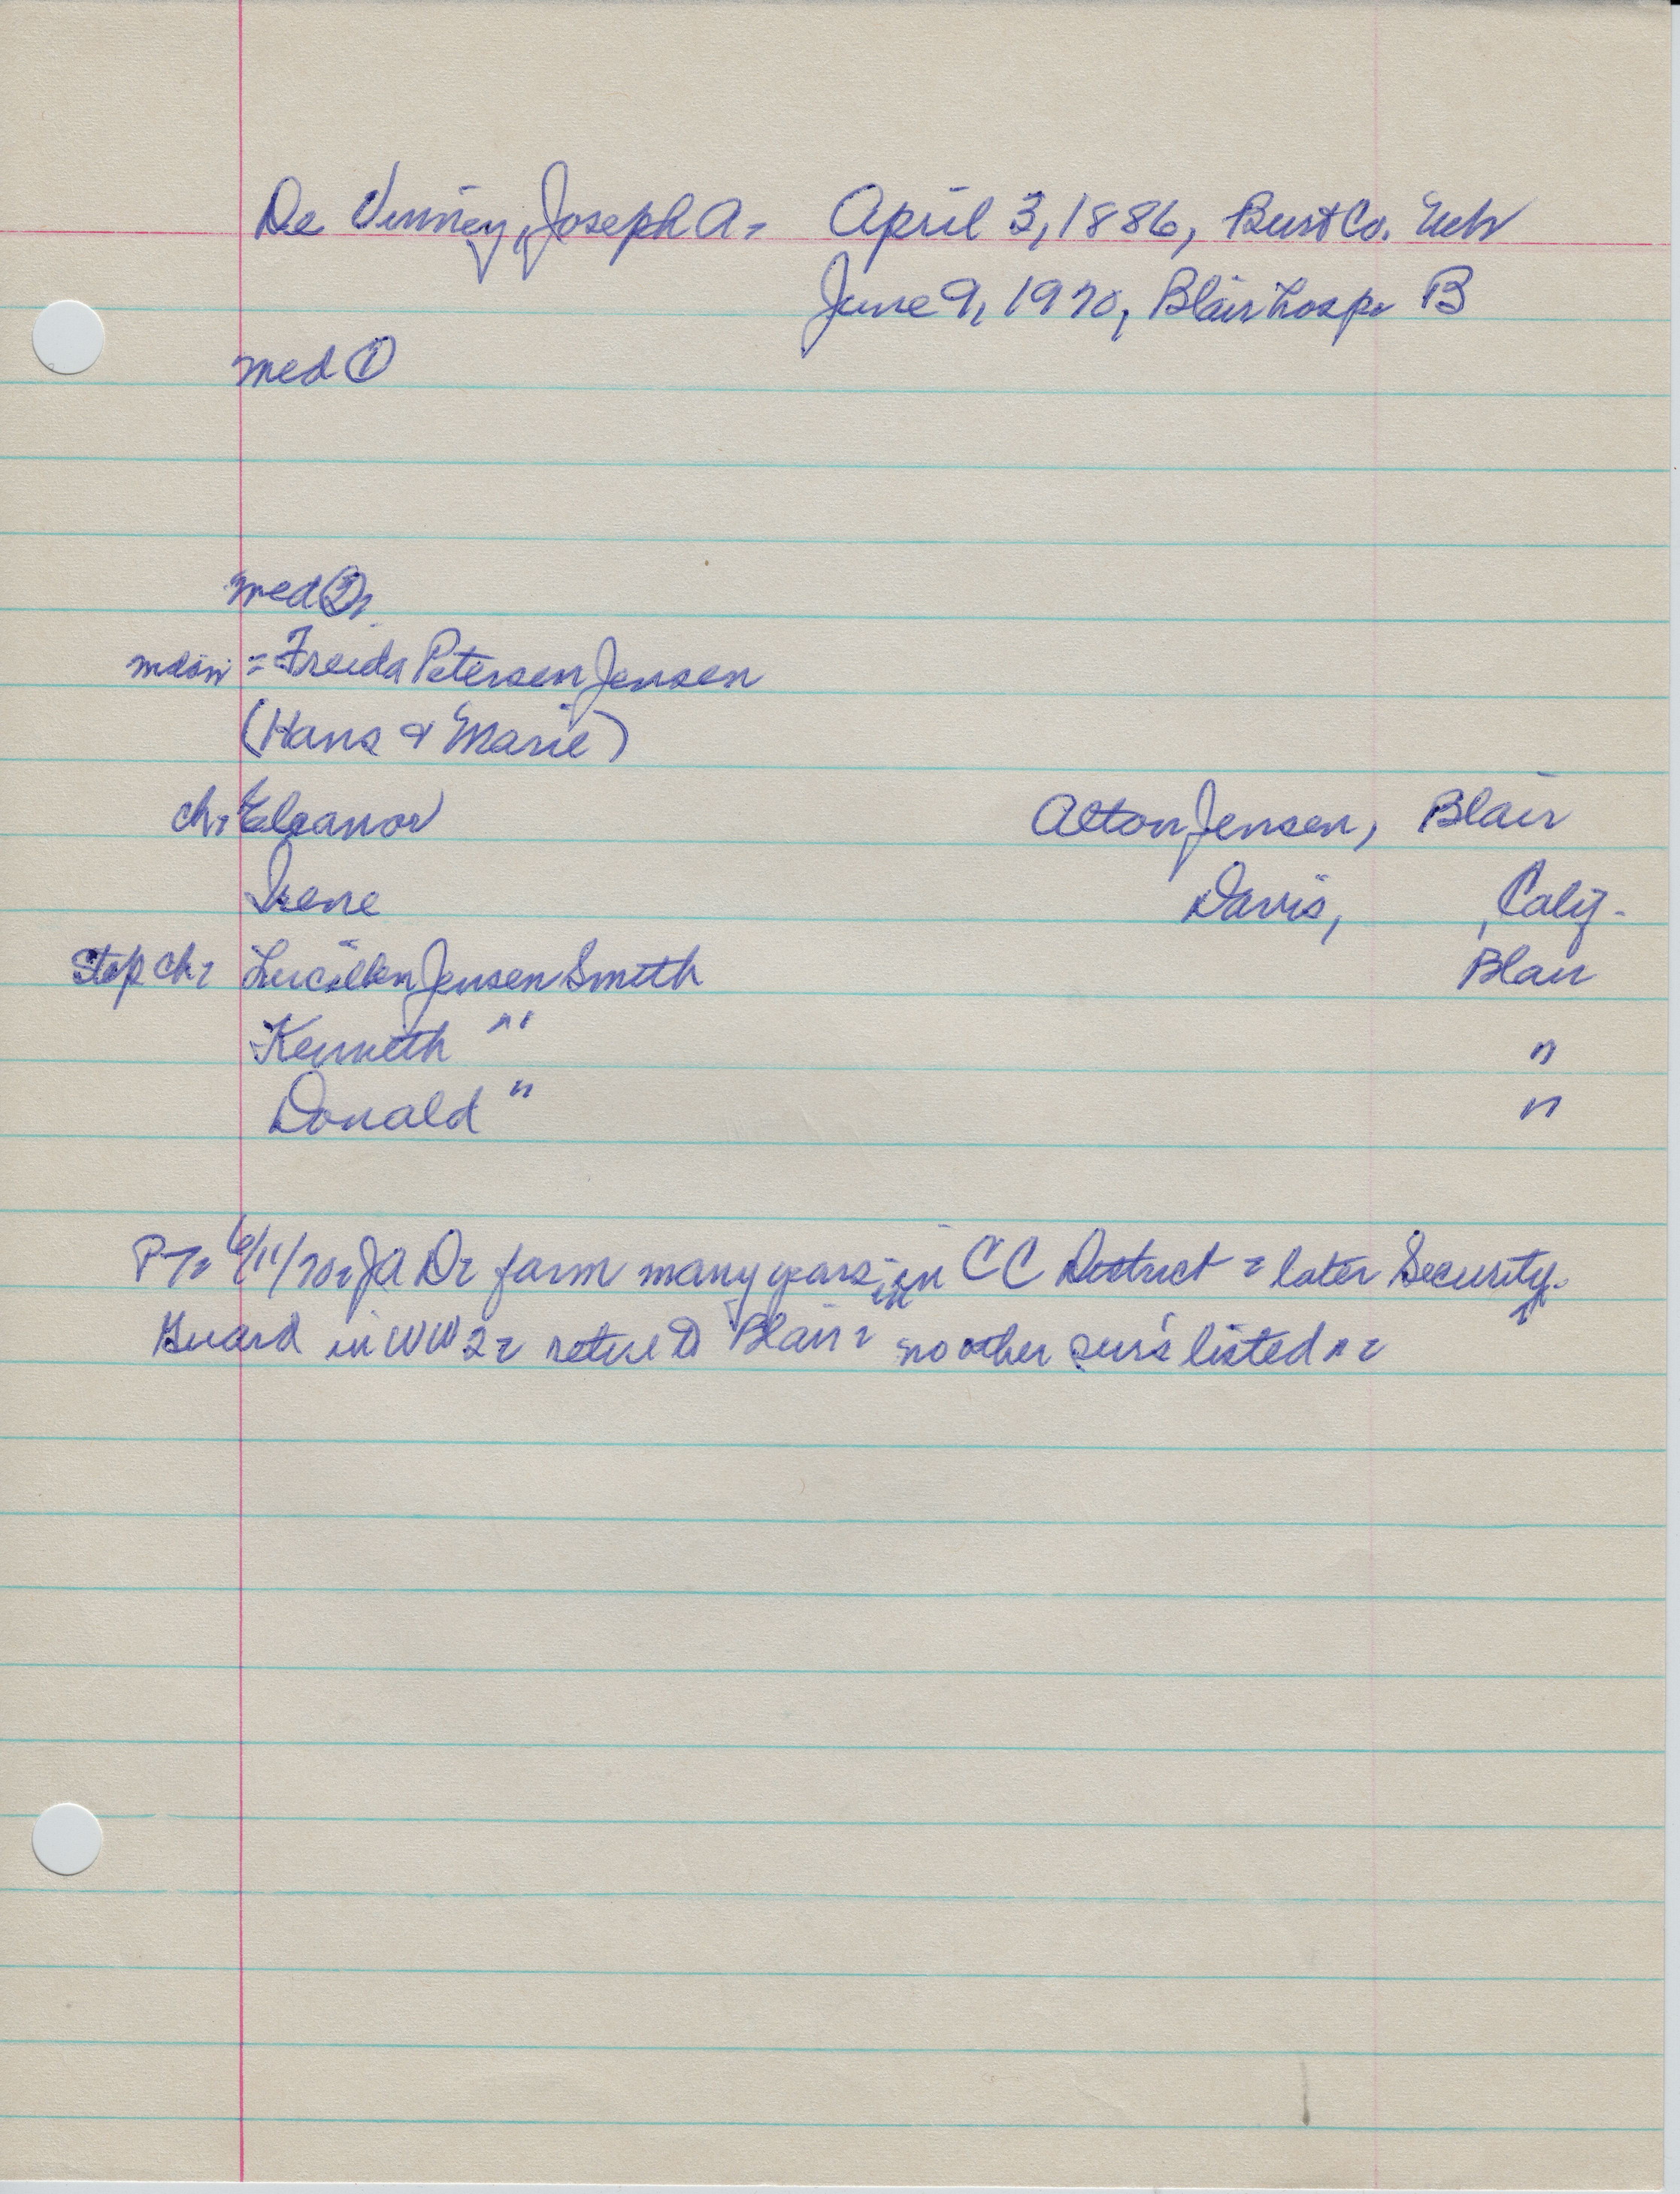 De Vinney, Joseph A. April 3, 1886, Burt Co. Neb
June 9, 1970, Blair hosp. B
med ①
med ②
= Freida Petersen Jensen
(Hans & Marie)
ch. Eleanor Alton Jensen, Blair
Irene Davis, , Calif.
Step ch: Jensen Smith Blair
Kenneth " "
Donald " "
PT: 6/11/70: JA D: farm many years in CC District = later Security
Guard in WW2: retire D Blair: no other listed